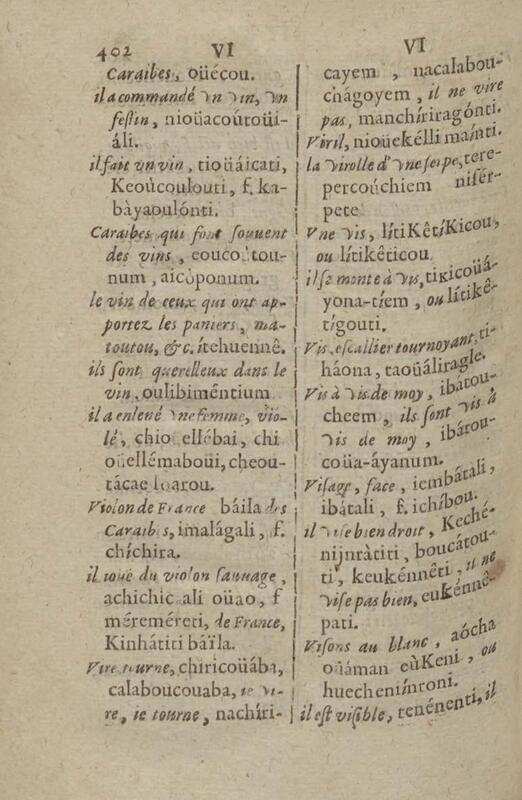 402 VI
Caraibes, oüécou.
il a commandé vn vin, vn
festin, nioüacoútoüi-
áli.
il fait vn vin, tioüáicati,
Keoúcoulouti, f. ka-
bàyaoulónti.
Caraibes qui font souuent
des vins, coucoútou-
num, aicóponum.
le vin de ceux qui ont ap-
portez les paniers, ma-
toutou, &c. ítehuennê.
ils sont querelleux dans le
vin, oulibiméntium
il a enleué vne femme, vio-
lé, chio ellébai, chi
oüellémaboüi, cheou-
tácae loarou.
Violon de France báila des
Caraibes, imalágali, f.
chíchira.
il ioüe du violon sauuage,
achichic ali oüao, f
méreméreti, de France,
Kinhátiti báïla.
Vire tourne, chiricoüába,
calaboucouaba, ie vi-
re, ie tourne, nachíri-
VI
cayem, nacalabou-
chágoyem, il ne vire
pas, manchíriragónti.
Viril, nioüekélli maínti.
la virolle d'vne serpe, tere-
percoúchiem nisér-
pete
Vne vis, lítiKêtíKicou,
ou lítikêticou.
il se monte à vis, tikicoüá-
yona-tíem, ou lítikê-
tígouti.
Vis, escallier tournoyant, ti-
háona, taoüáliragle.
Vis à vis de moy, ibátou-
cheem, ils sont vis à
vis de moy, ibátou-
coüa-áyanum.
Visage, face, iembátali,
ibátali, f. ichíbou.
il vise bien droit, Keché-
nijnràtiti, boucátou-
ti, keukénnêti, il ne
vise pas bien, eukénnê-
pati.
Visons au blanc, aócha
oüáman eùKeni, ou
huechenínroni.
il est visible, tenénenti, il